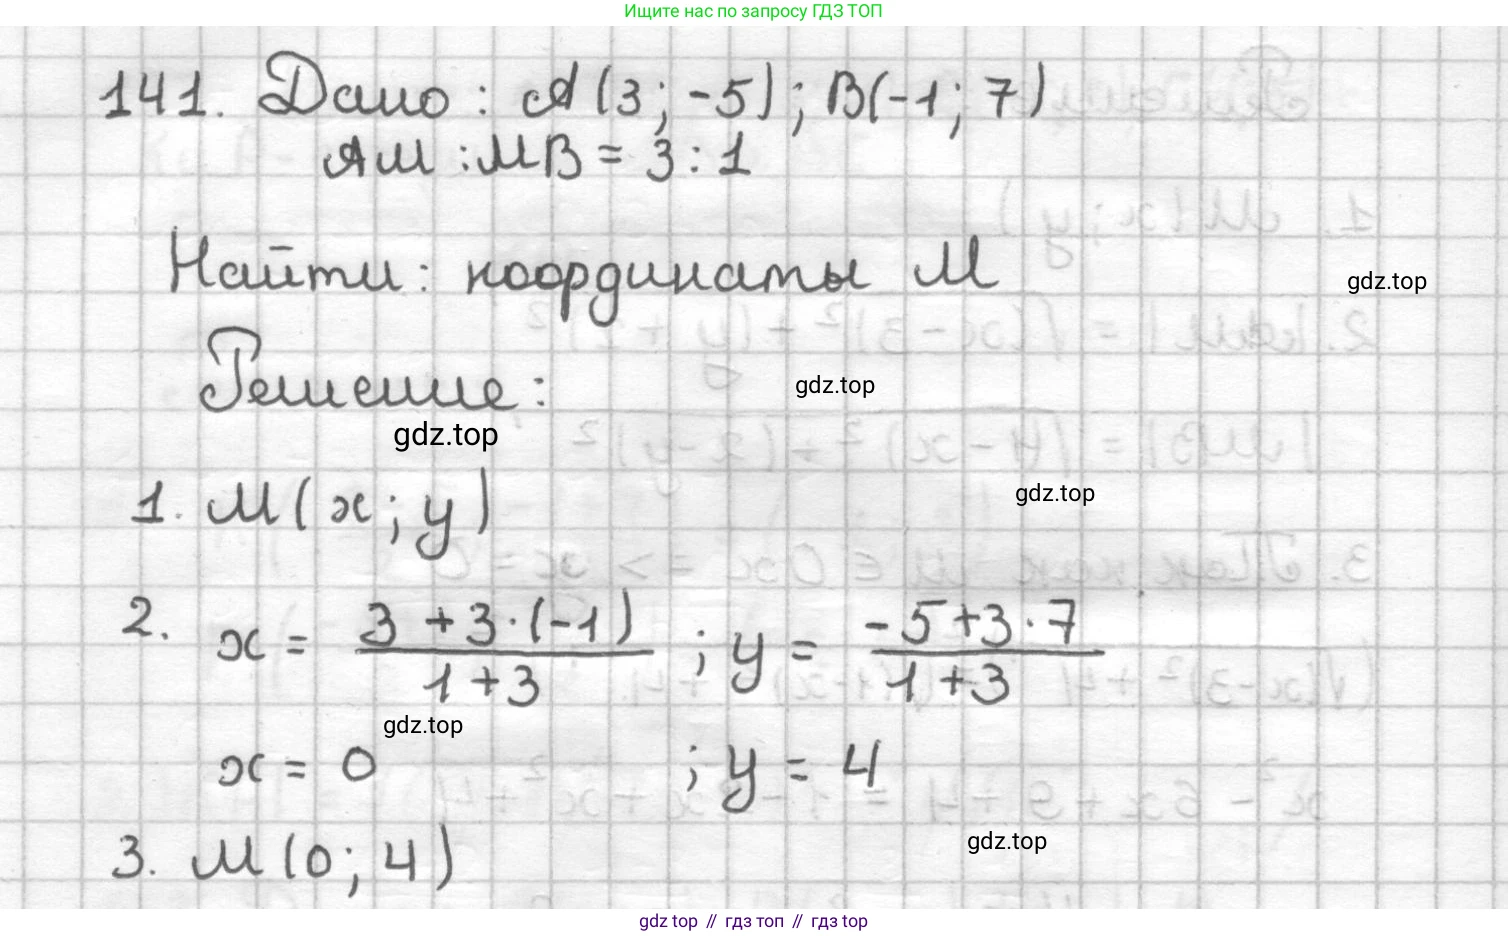 Ищите нас по запросу ГДЗ ТОП
141. Дано: A(3; -5); B(-1; 7)
AM : MB = 3 : 1
Найти: координаты M
gdz.top
Решение:
gdz.top
gdz.top
1. M(x; y)
gdz.top
2. x = (3 + 3·(-1))/(1 + 3) ; y = (-5 + 3·7)/(1 + 3)
gdz.top
x = 0 ; y = 4
gdz.top
3. M(0; 4)
gdz top // гдз топ // гдз top